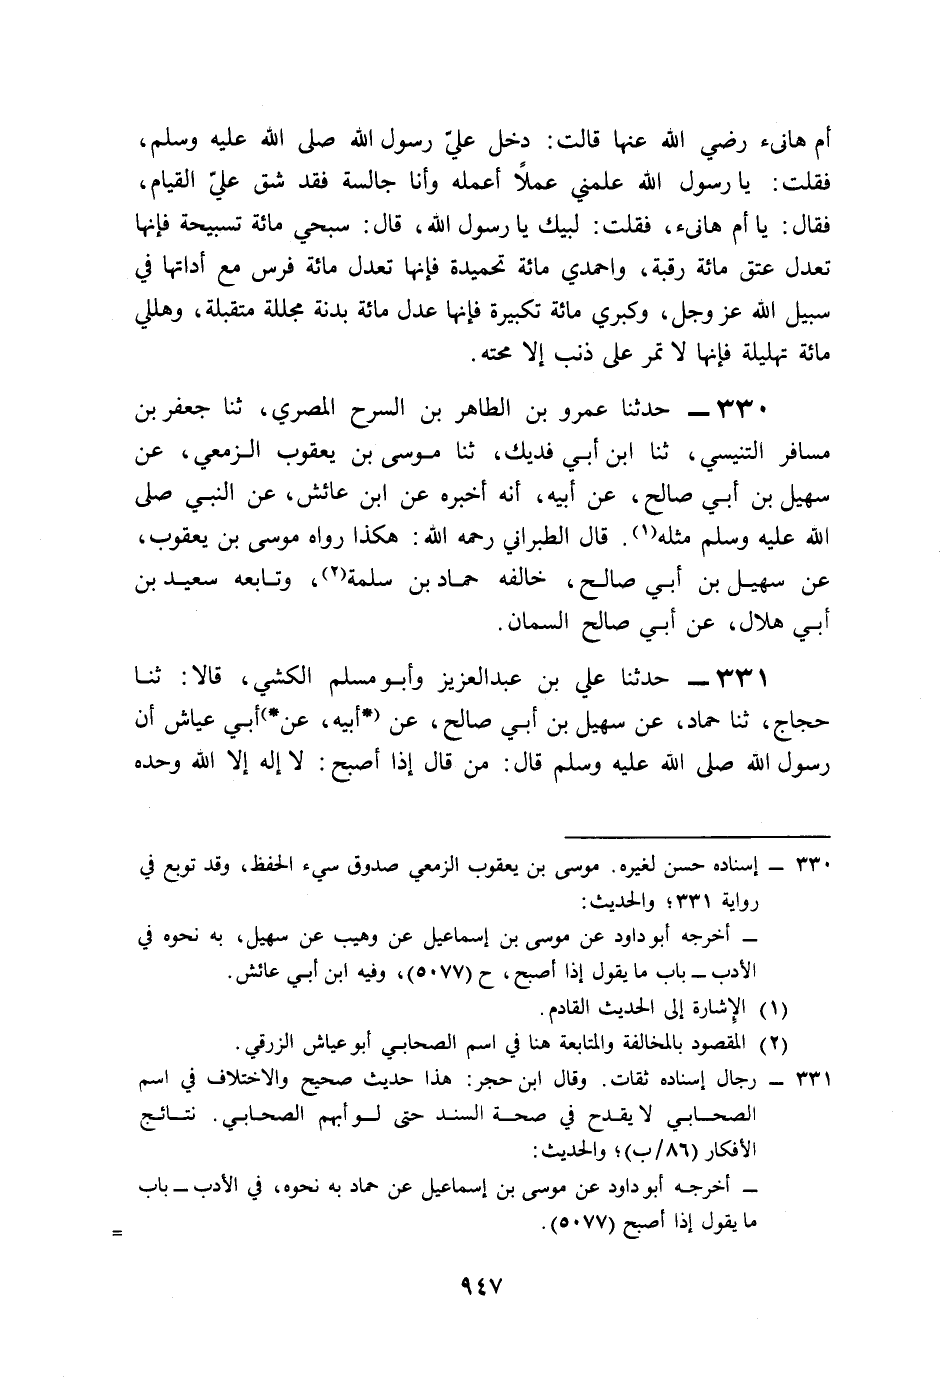 أم هانىء رضي الله عنها قالت: دخل عليّ رسول الله صلى الله عليه وسلم،
فقلت: يا رسول الله علمني عملاً أعمله وأنا جالسة فقد شق عليّ القيام،
فقال: يا أم هانىء، فقلت: لبيك يا رسول الله، قال: سبحي مائة تسبيحة فإنها
تعدل عتق مائة رقبة، واحمدي مائة تحميدة فإنها تعدل مائة فرس مع أداتها في
سبيل الله عز وجل، وكبري مائة تكبيرة فإنها عدل مائة بدنة مجللة متقبلة، وهللي
مائة تهليلة فإنها لا تمر على ذنب إلا محته.
٣٣٠ ـ حدثنا عمرو بن الطاهر بن السرح المصري، ثنا جعفر بن
مسافر التنيسي، ثنا ابن أبي فديك، ثنا موسى بن يعقوب الزمعي، عن
سهيل بن أبي صالح، عن أبيه، أنه أخبره عن ابن عائش، عن النبي صلى
الله عليه وسلم مثله(١). قال الطبراني رحمه الله: هكذا رواه موسى بن يعقوب،
عن سهيل بن أبي صالح، خالفه حماد بن سلمة(٢)، وتابعه سعيد بن
أبي هلال، عن أبي صالح السمان.
٣٣١ ـ حدثنا علي بن عبدالعزيز وأبو مسلم الكشي، قالا: ثنا
حجاج، ثنا حماد، عن سهيل بن أبي صالح، عن (*أبيه، عن*)أبي عياش أن
رسول الله صلى الله عليه وسلم قال: من قال إذا أصبح: لا إله إلا الله وحده
٣٣٠ ـ إسناده حسن لغيره. موسى بن يعقوب الزمعي صدوق سيء الحفظ، وقد توبع في
رواية ٣٣١؛ والحديث:
ـ أخرجه أبو داود عن موسى بن إسماعيل عن وهيب عن سهيل، به نحوه في
الأدب ـ باب ما يقول إذا أصبح، ح (٥٠٧٧)، وفيه ابن أبي عائش.
(١) الإشارة إلى الحديث القادم.
(٢) المقصود بالمخالفة والمتابعة هنا في اسم الصحابي أبو عياش الزرقي.
٣٣١ ـ رجال إسناده ثقات. وقال ابن حجر: هذا حديث صحيح والاختلاف في اسم
الصحابي لا يقدح في صحة السند حتى لو أبهم الصحابي. نتائج
الأفكار (٨٦/ب)؛ والحديث:
ـ أخرجه أبو داود عن موسى بن إسماعيل عن حماد به نحوه، في الأدب ـ باب
ما يقول إذا أصبح (٥٠٧٧).
=
٩٤٧